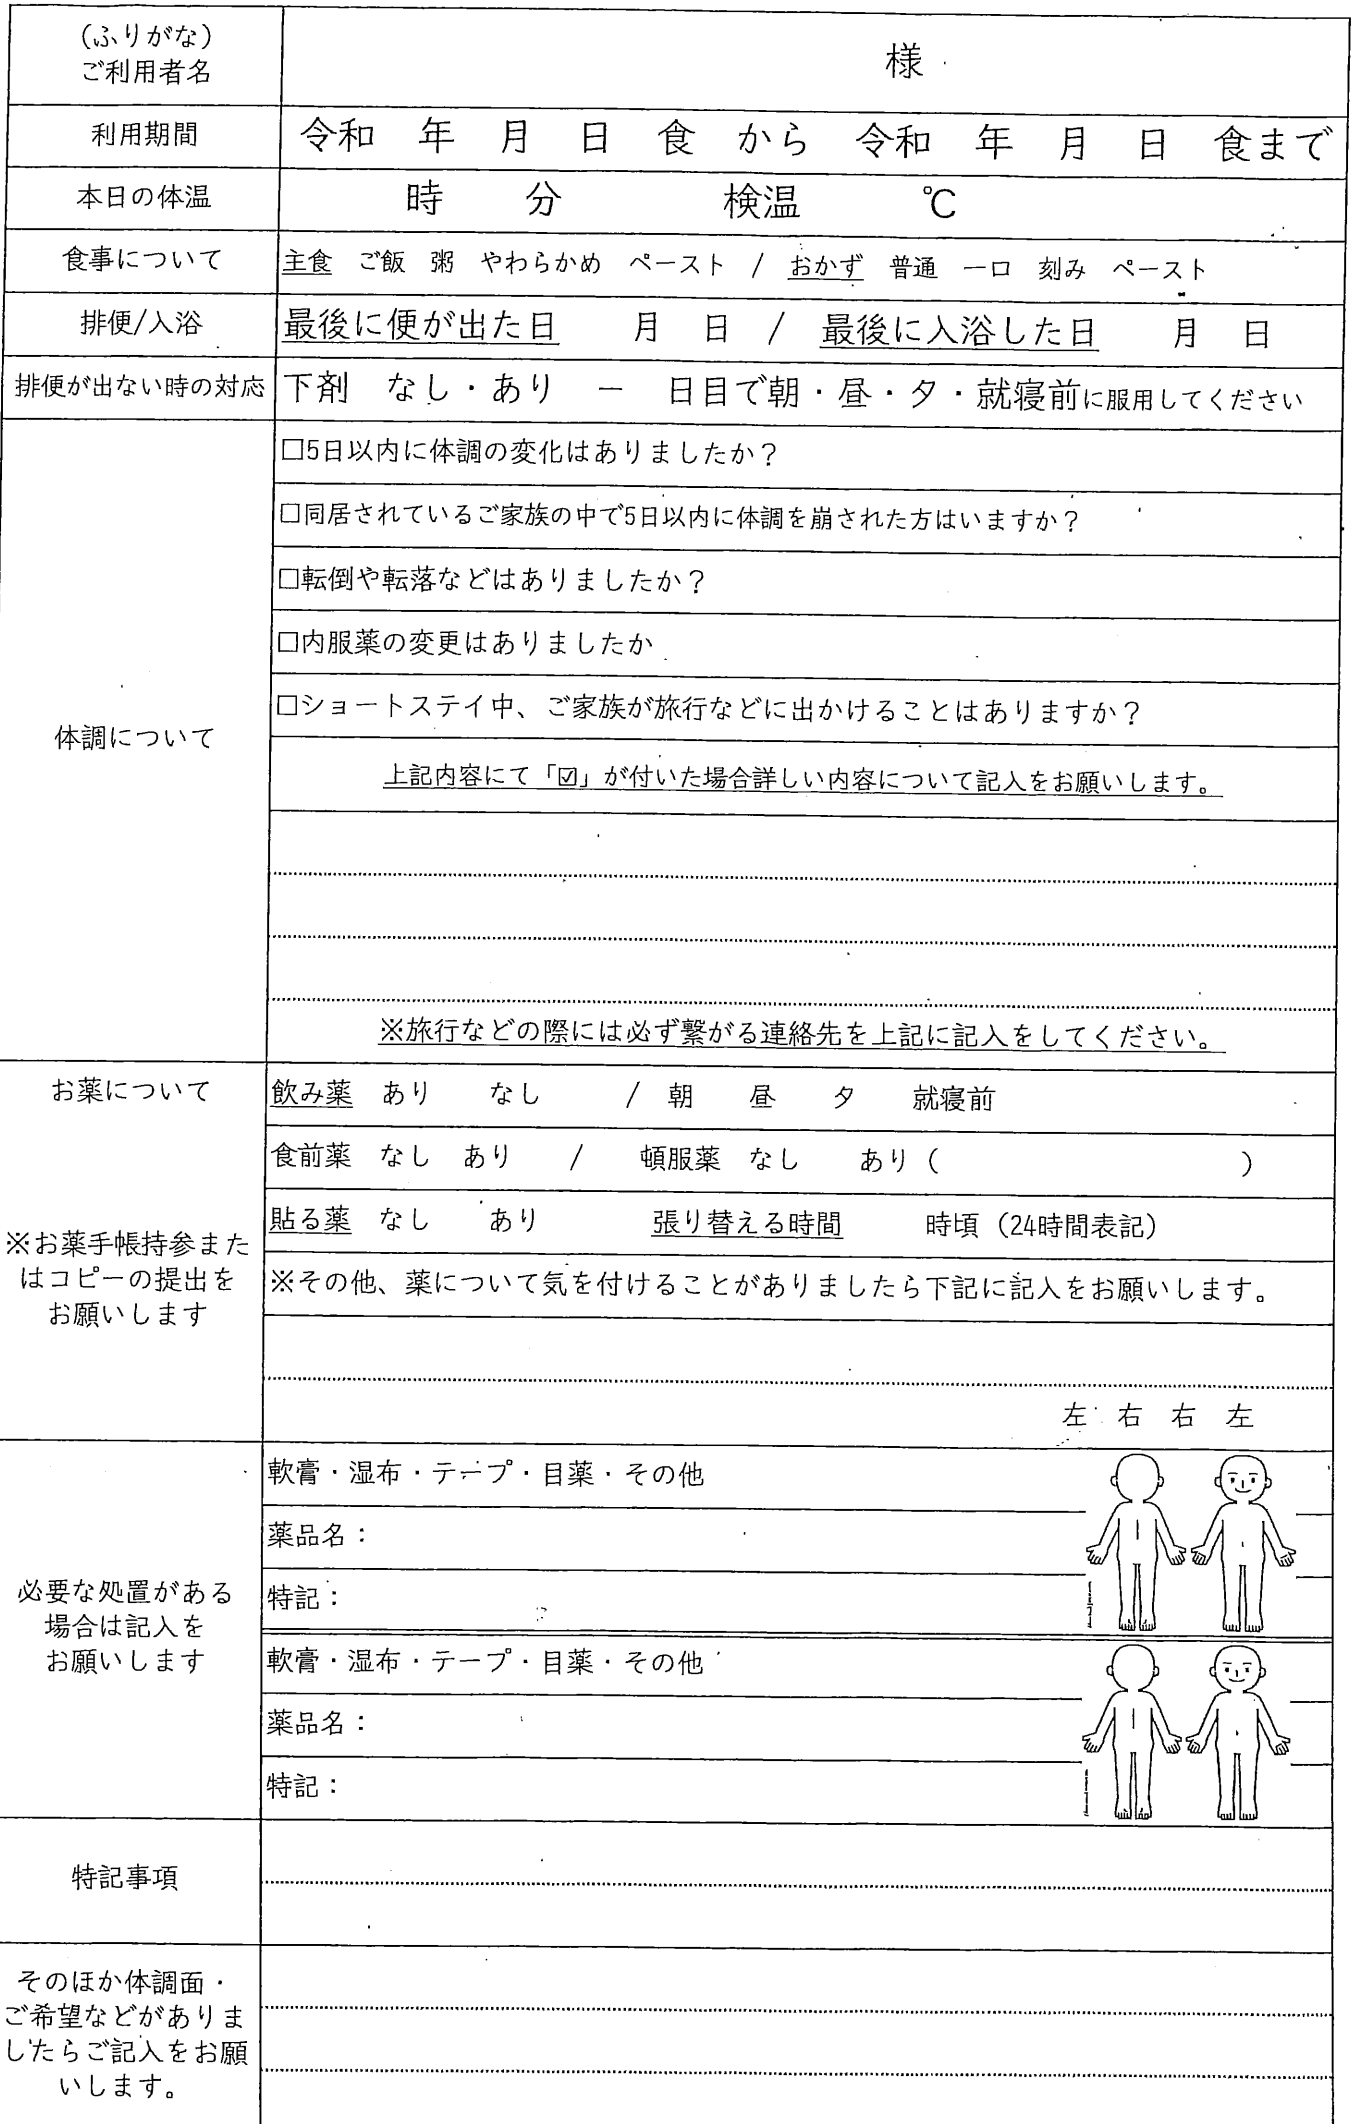 (ふりがな)
ご利用者名
様
利用期間
令和 年 月 日 食 から 令和 年 月 日 食まで
本日の体温
時 分 検温 ℃
食事について
主食 ご飯 粥 やわらかめ ペースト / おかず 普通 一口 刻み ペースト
排便/入浴
最後に便が出た日 月 日 / 最後に入浴した日 月 日
排便が出ない時の対応
下剤 なし・あり ー 日目で朝・昼・夕・就寝前に服用してください
体調について
□5日以内に体調の変化はありましたか？
□同居されているご家族の中で5日以内に体調を崩された方はいますか？
□転倒や転落などはありましたか？
□内服薬の変更はありましたか
□ショートステイ中、ご家族が旅行などに出かけることはありますか？
上記内容にて「☑」が付いた場合詳しい内容について記入をお願いします。
※旅行などの際には必ず繋がる連絡先を上記に記入をしてください。
お薬について
※お薬手帳持参また
はコピーの提出を
お願いします
飲み薬 あり なし / 朝 昼 夕 就寝前
食前薬 なし あり / 頓服薬 なし あり（ ）
貼る薬 なし あり 張り替える時間 時頃（24時間表記）
※その他、薬について気を付けることがありましたら下記に記入をお願いします。
左 右 右 左
必要な処置がある
場合は記入を
お願いします
軟膏・湿布・テープ・目薬・その他
薬品名：
特記：
軟膏・湿布・テープ・目薬・その他
薬品名：
特記：
特記事項
そのほか体調面・
ご希望などがありま
したらご記入をお願
いします。